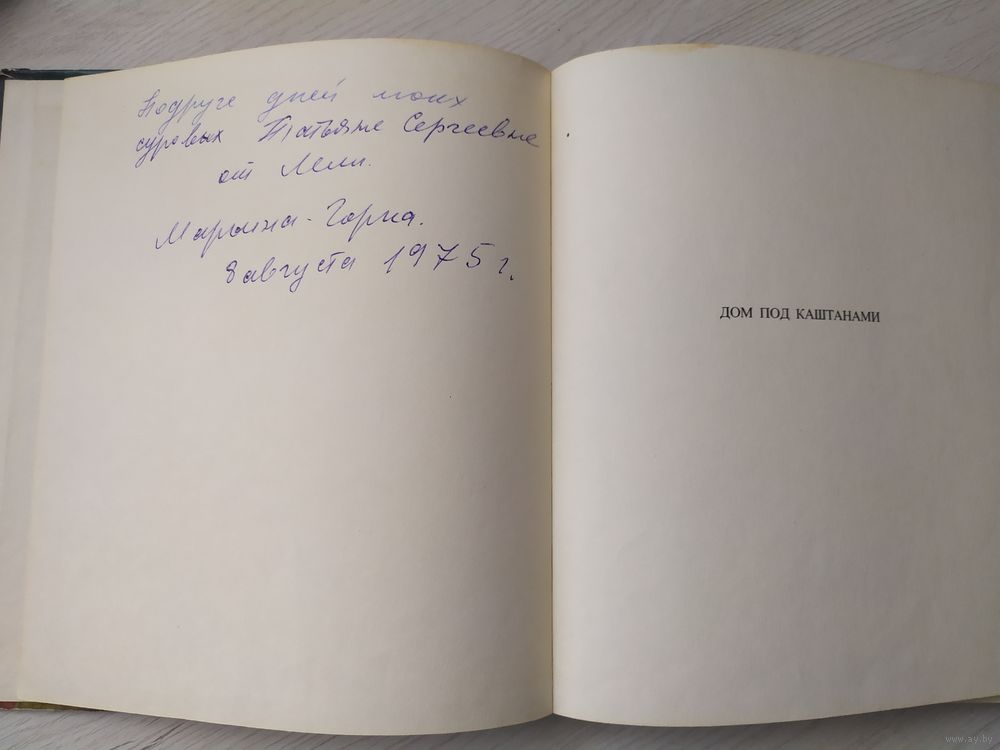 Подруге дней моих
суровых Татьяне Сергеевне
от Лели.
Марьина-Горка.
8 августа 1975 г.
ДОМ ПОД КАШТАНАМИ
www.ay.by